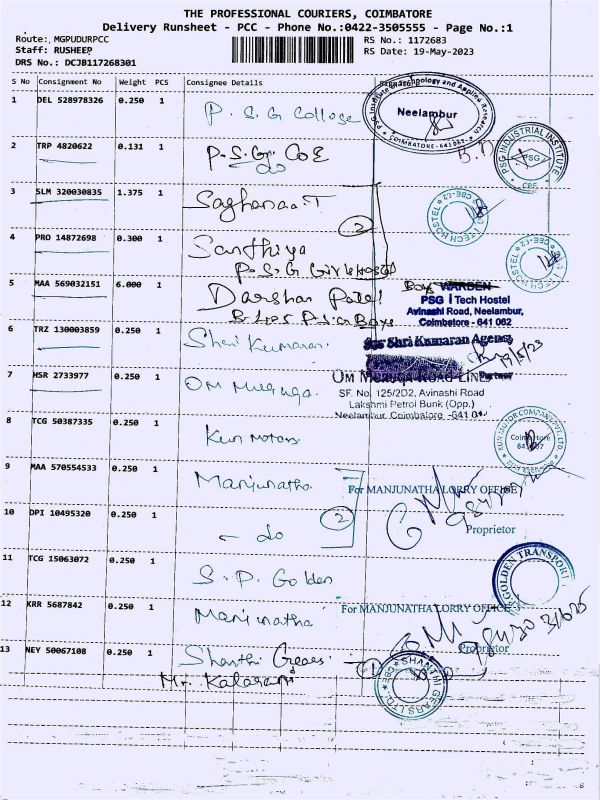 THE PROFESSIONAL COURIERS, COIMBATORE
Delivery Runsheet - PCC - Phone No.:0422-3505555 - Page No.:1
Route: MGPUDURPCC RS No.: 1172683
Staff: RUSHEEP RS Date: 19-May-2023
DRS No.: DCJB117268301
S No Consignment No Weight PCS Consignee Details
1 DEL 528978326 0.250 1 P.S.G College
Neelambur
COIMBATORE - 641 062
2 TRP 4820622 0.131 1 P.S.G. COE
do
PSG INDUSTRIAL INSTITUTE
PSG
CBE
3 SLM 320030835 1.375 1
2
TECH HOSTEL CBE-62
4 PRO 14872698 0.300 1 Santhiya
P.S.G Girls Hostel
5 MAA 569032151 6.000 1 Darshan Patel
Boys WARDEN
PSG iTech Hostel
Avinashi Road, Neelambur,
Coimbatore - 641 062
6 TRZ 130003859 0.250 1 Shri Kumaran
For Shri Kumaran Agency
Partner
19/5/23
7 HSR 2733977 0.250 1 Om Muruga
OM MURUGA ROAD LINES
SF. No. 125/2D2, Avinashi Road
Lakshmi Petrol Bunk (Opp.)
Neelambur, Coimbatore -641 0
8 TCG 50387335 0.250 1 Kun Motors
KUN MOTOR COMPANY PVT. LTD
Coimbatore
9 MAA 570554533 0.250 1 Manjunatha
For MANJUNATHA LORRY OFFICE
2
Proprietor
10 DPI 10495320 0.250 1 - do
11 TCG 15063072 0.250 1 S.P. Golden
GOLDEN TRANSPORT
12 KRR 5687842 0.250 1 Manjunatha
For MANJUNATHA LORRY OFFICE
Proprietor
13 NEY 50067108 0.250 1 Shanthi Gears
1
Mr. Kalarani
SHANTHI GEARS LTD.
CBE